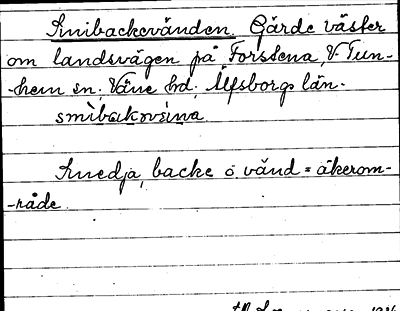 Smibackevänden. Gärde väster
om landsvägen på Forstena, V Tun-
-hem sn. Väne hd. Älfsborgs län.
smibakveina
Smedja, backe o. vänd = åkerom-
-råde.